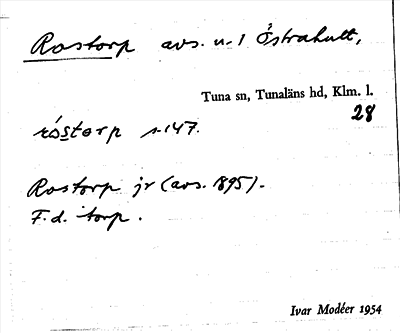 Rostorp avs. u. 1 Östrahult,
Tuna sn, Tunaläns hd, Klm. l.
28
róstorp s. 147.
Rostorp jr (avs. 1895).
F.d. torp.
Ivar Modéer 1954